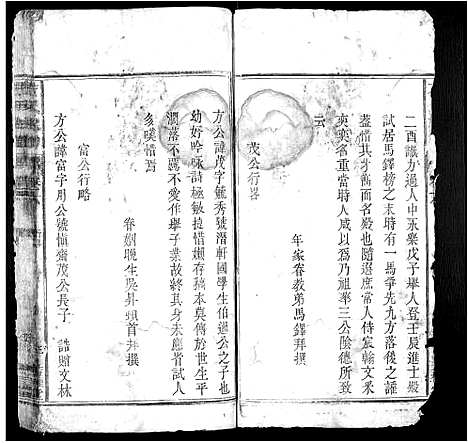 二酉議方過人中永樂戊子舉人登壬辰進士殿
試居馬鐸榜之末時有一馬爭先九方落後之謠
蓋惜其才舊而名殿也隨選庶當人侍宸翰文釆
奕奕名重當時人咸以為乃祖華三公陰德所致
云
年家眷教弟馬鐸拜撰
茂公行畧
方公諱茂字毓秀號潛軒國學生伯通公之子也
幼好吟咏詩極敏捷惜嬾存稿大莫傳於世生平
濶落不羈不愛作舉子業故終其身未應者試人
多嘆惜焉
眷姻晚生吳昇頓首拜撰
富公行略
方公諱富字用公號慎齋茂公長子 誥贈文林